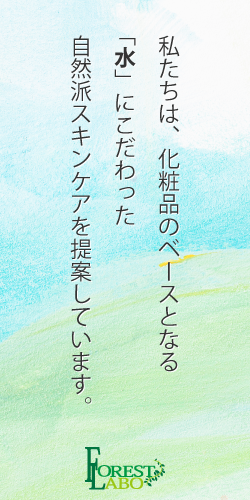 私たちは、化粧品のベースとなる
「水」にこだわった
自然派スキンケアを提案しています。
FOREST
LABO